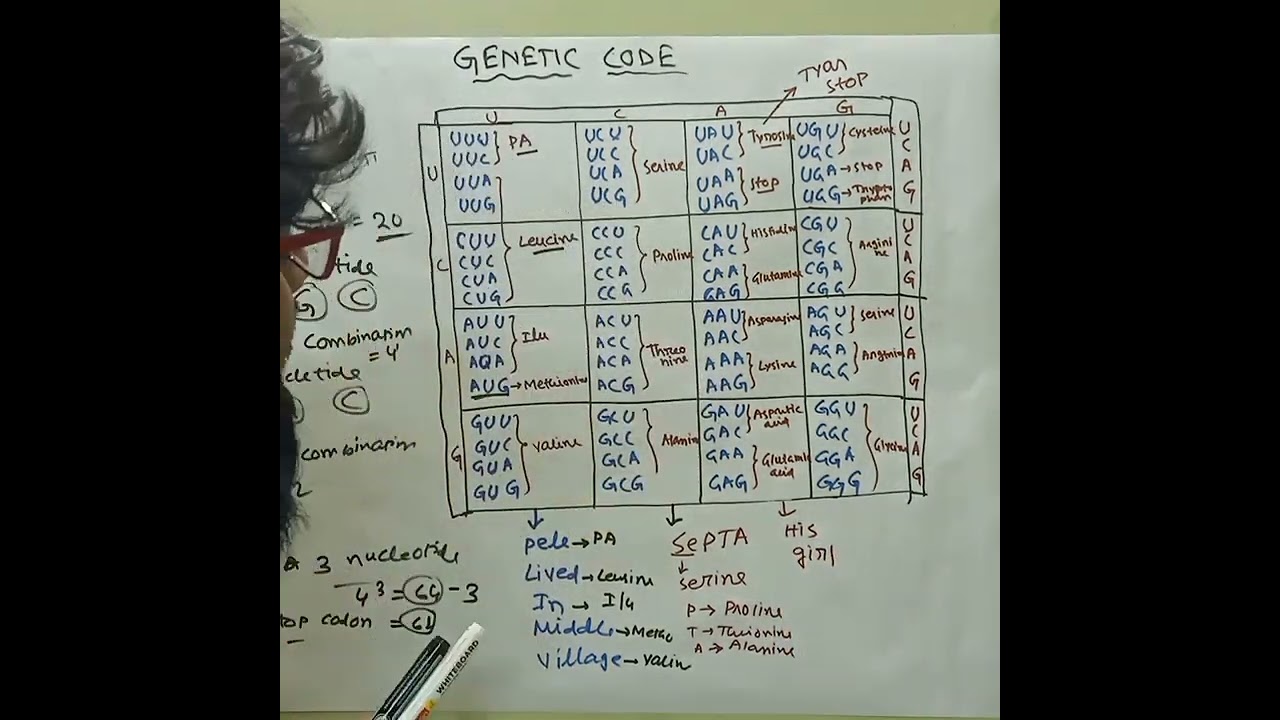 GENETIC CODE
Tyan
STOP
U C A G
U
UUU
UUC
PA
UUA
UUG
UCU
UCC
UCA
UCG
Serine
UAU
UAC
Tyrosine
UAA
UAG
Stop
UGU
UGC
Cysteine
UGA → STOP
UGG → Trypto
phan
U
C
A
G
C
CUU
CUC
CUA
CUG
Leucine
CCU
CCC
CCA
CCG
Proline
CAU
CAC
Histidine
CAA
GAG
Glutamine
CGU
CGC
CGA
CGG
Argini
ne
U
C
A
G
A
AUU
AUC
AQA
Ilu
AUG → Methionine
ACU
ACC
ACA
ACG
Threo
nine
AAU
AAC
Asparagine
AAA
AAG
Lysine
AGU
AGC
Serine
AGA
AGG
U
C
A
G
G
GUU
GUC
GUA
GUG
Valine
GCU
GCC
GCA
GCG
Alanin
GAU
GAC
acid
GAA
GAG
Glutamic
acid
GGU
GGC
GGA
GGG
Glycine
U
C
A
G
= 20
G C
combination
= 4'
C
combination
2
3 nucleotide
4³ = 64 - 3
colon = 61
Pele → PA
Lived → Leucine
In → Ilu
Middle → Metho
Village → Valin
SePTA
↓
Serine
P → Proline
T → Thrionine
A → Alanine
His
girl
WHITEBOARD